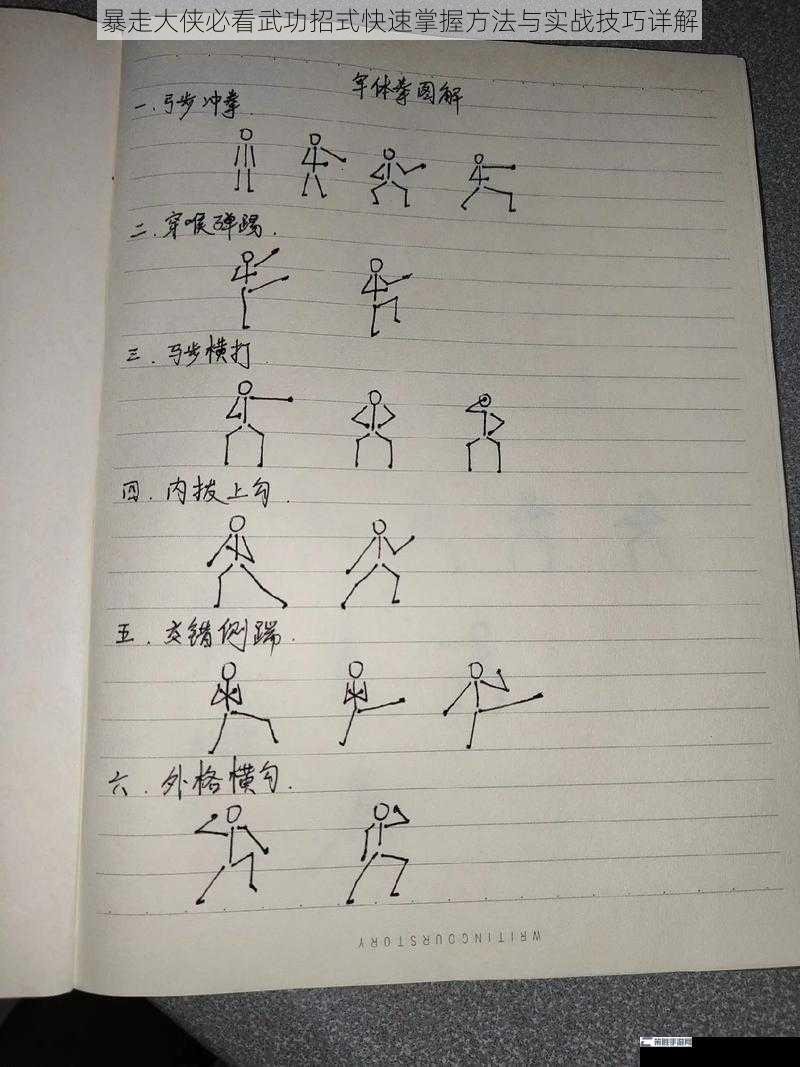 暴走大侠必看武功招式快速掌握方法与实战技巧详解
军体拳图解
一.弓步冲拳.
二.穿喉弹踢.
三.马步横打
四.内拨上勾.
五.交错侧踹.
六.外格横勾.
WRITINGOURSTORY
第胜手游网